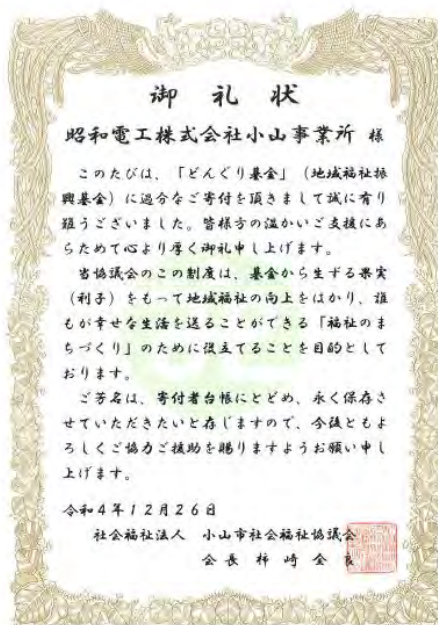 御礼状
昭和電工株式会社小山事業所 様
このたびは、「どんぐり基金」(地域福祉振
興基金)に過分なご寄付を頂きまして誠に有り
難うございました。皆様方の温かいご支援にあ
らためて心より厚く御礼申し上げます。
当協議会のこの制度は、基金から生ずる果実
(利子)をもって地域福祉の向上をはかり、誰
もが幸せな生活を送ることができる「福祉のま
ちづくり」のために役立てることを目的として
おります。
ご芳名は、寄付者台帳にとどめ、永く保存さ
せていただきたいと存じますので、今後ともよ
ろしくご協力ご援助を賜りますようお願い申し
上げます。
令和4年12月26日
社会福祉法人 小山市社会福祉協議会
会長 柿崎全良